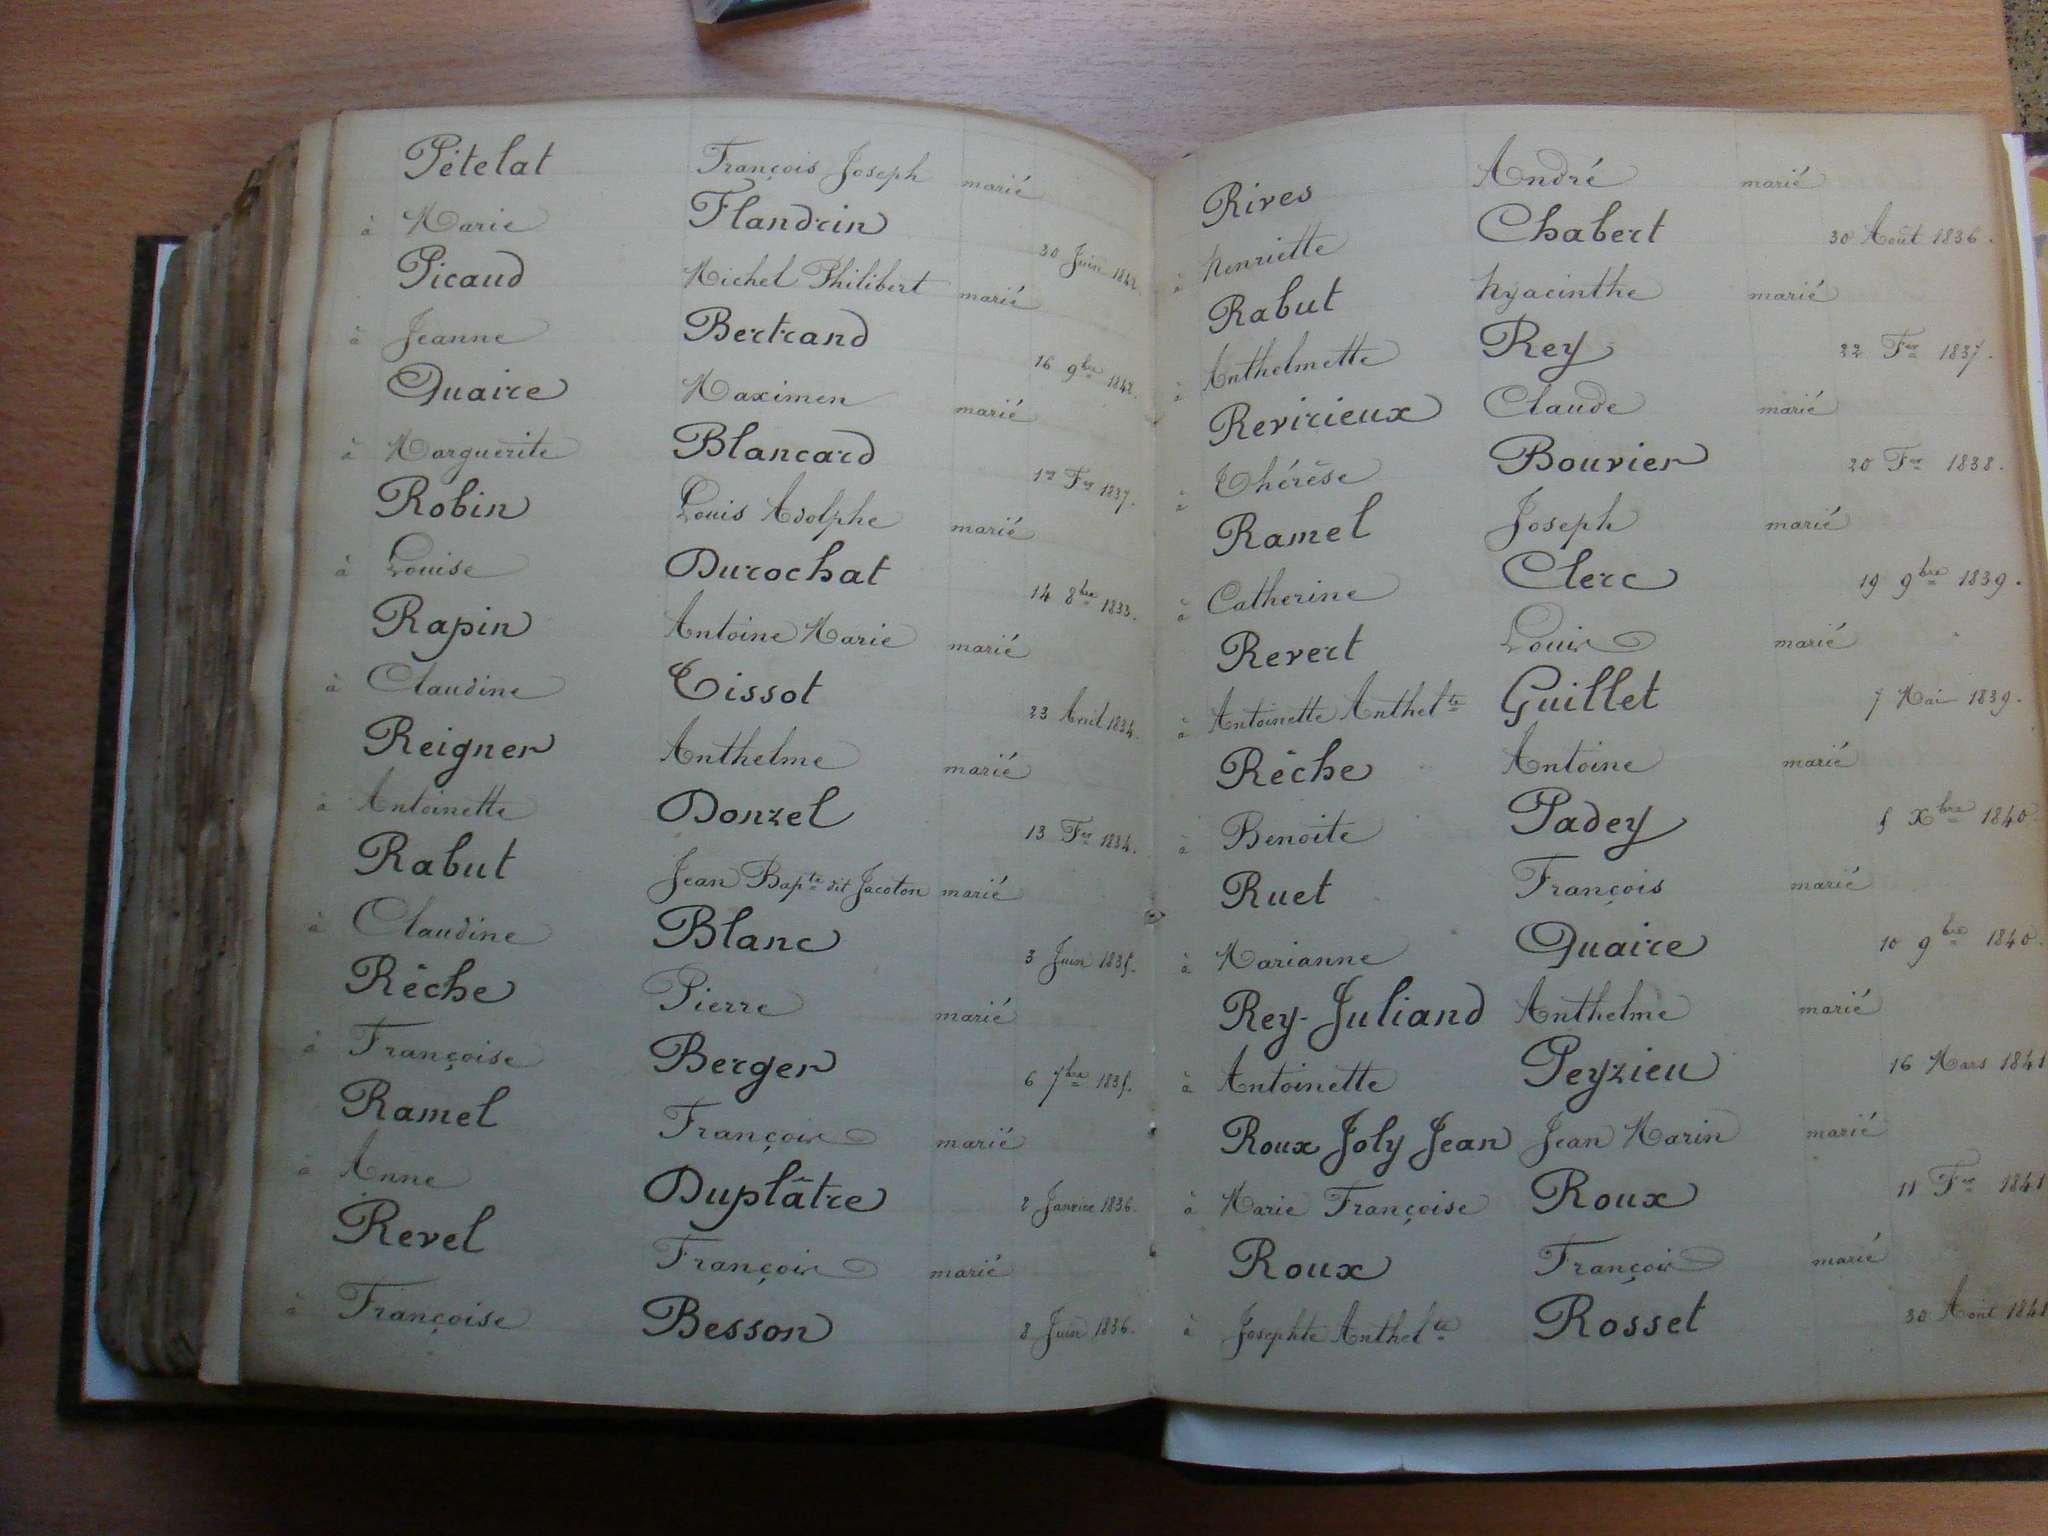 Pételat François Joseph marié
à Marie Flandrin 30 Juin 1842.
Picaud Michel Philibert marié
à Jeanne Bertrand 16 9bre 1842.
Quaire Maximen marié
à Marguerite Blancard 1er Fer 1837.
Robin Louis Adolphe marié
à Louise Durochat 14 8bre 1833.
Rapin Antoine Marie marié
à Claudine Tissot 23 Avril 1834.
Reigner Anthelme marié
à Antoinette Donzel 13 Fer 1834.
Rabut Jean Bapte dit Jacoton marié
à Claudine Blanc 3 Juin 1835.
Rêche Pierre marié
à Françoise Berger 6 7bre 1835.
Ramel François marié
à Anne Duplâtre 2 Janvier 1836.
Revel François marié
à Françoise Besson 8 Juin 1836.
Rives André marié
à henriette Chabert 30 Août 1836.
Rabut hyacinthe marié
à Anthelmette Rey 22 Fer 1837.
Revirieux Claude marié
à Thérèse Bouvier 20 Fer 1838.
Ramel Joseph marié
à Catherine Clerc 19 9bre 1839.
Revert Louis marié
à Antoinette Anthelte Guillet 7 Mai 1839.
Rêche Antoine marié
à Benoite Padey 5 Xbre 1840.
Ruet François marié
à Marianne Quaire 10 9bre 1840.
Rey-Juliand Anthelme marié
à Antoinette Peyzieu 16 Mars 1841
Roux Joly Jean Jean Marin marié
à Marie Françoise Roux 11 Fer 1841
Roux François marié
à Josephte Anthelte Rosset 30 Août 1841